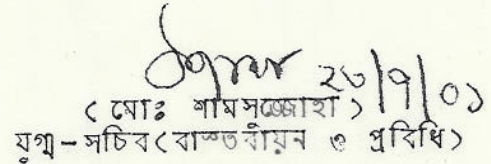 ২৩/৭/০১
( মোঃ শামসুজ্জোহা )
যুগ্ম-সচিব(বাস্তবায়ন ও প্রবিধি)